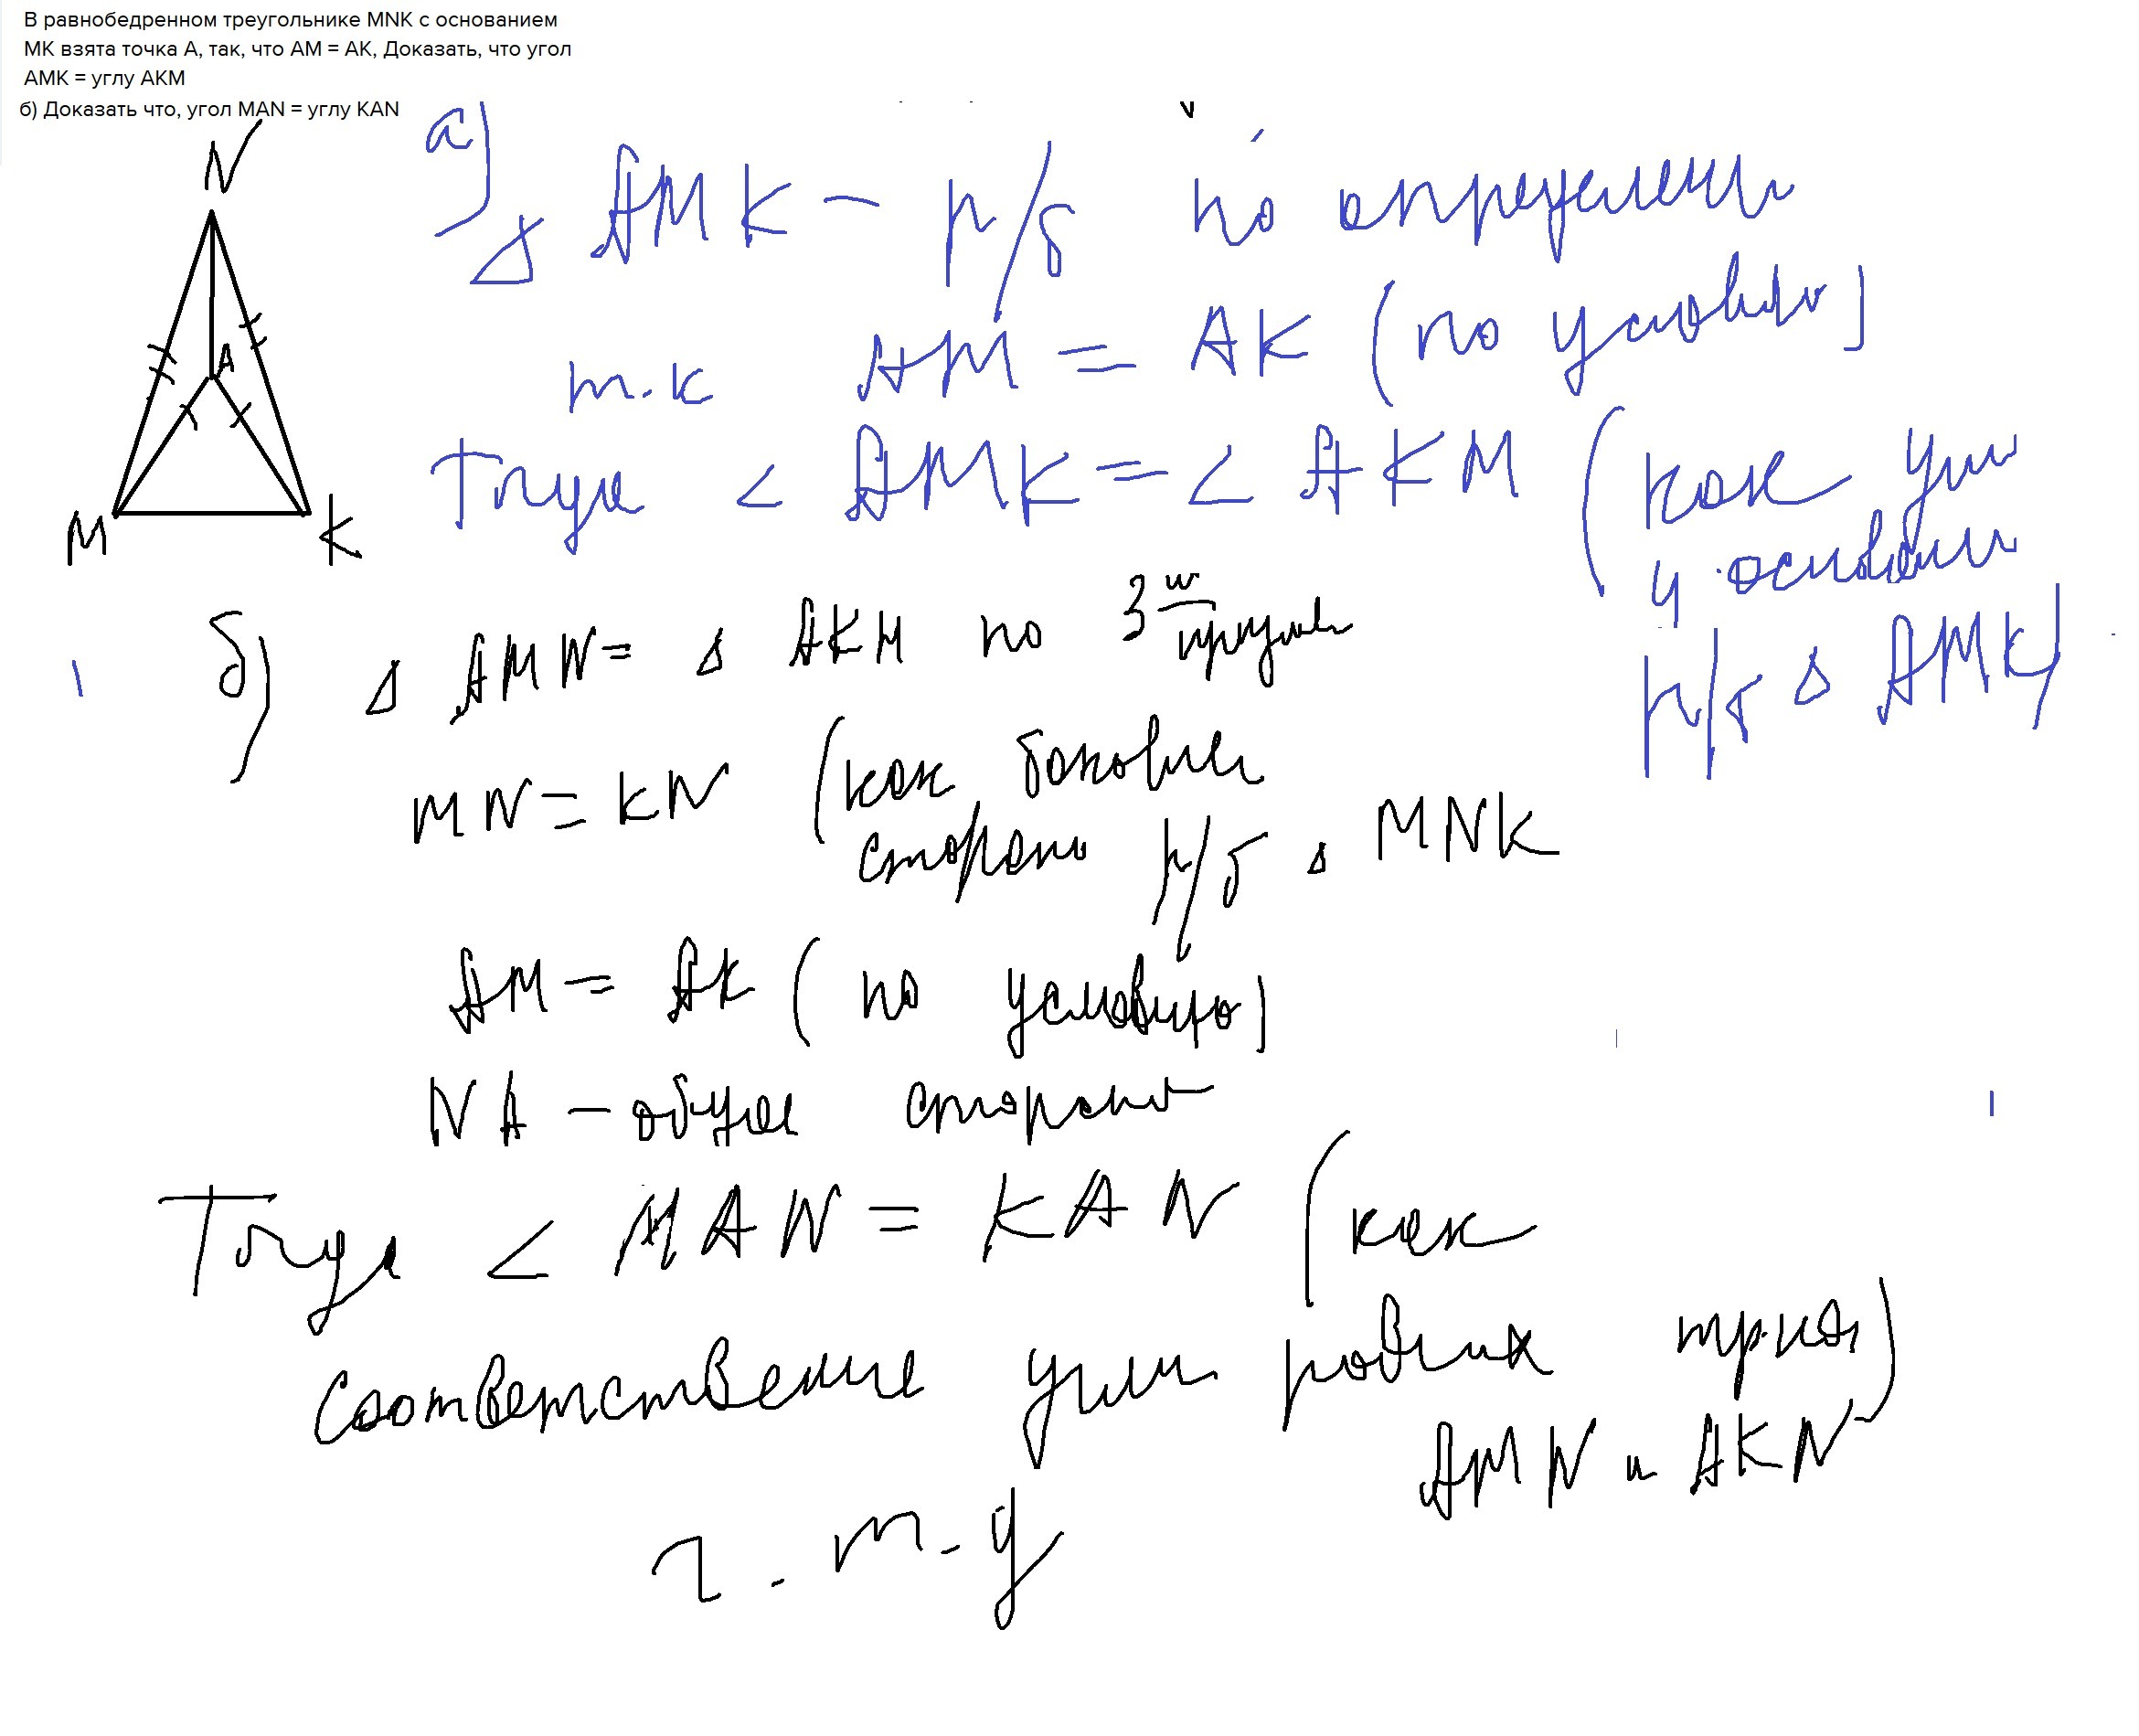 В равнобедренном треугольнике MNK с основанием
МК взята точка А, так, что АМ = АК, Доказать, что угол
АМК = углу АКМ
б) Доказать что, угол MAN = углу KAN
N
A
M
K
а)
Δ AMK – р/б по определению
т.к AM = AK (по условию)
Тогда < AMK = < AKM (как углы
у основания
р/б Δ AMK)
б) Δ AMN = Δ AKN по 3 м признакам
MN = KN (как боковые
стороны р/б Δ MNK
AM = AK (по условию)
NA – общая сторона
Тогда < MAN = KAN (как
соответственные углы равных тр-ков)
AMN и AKN
ч.т.д